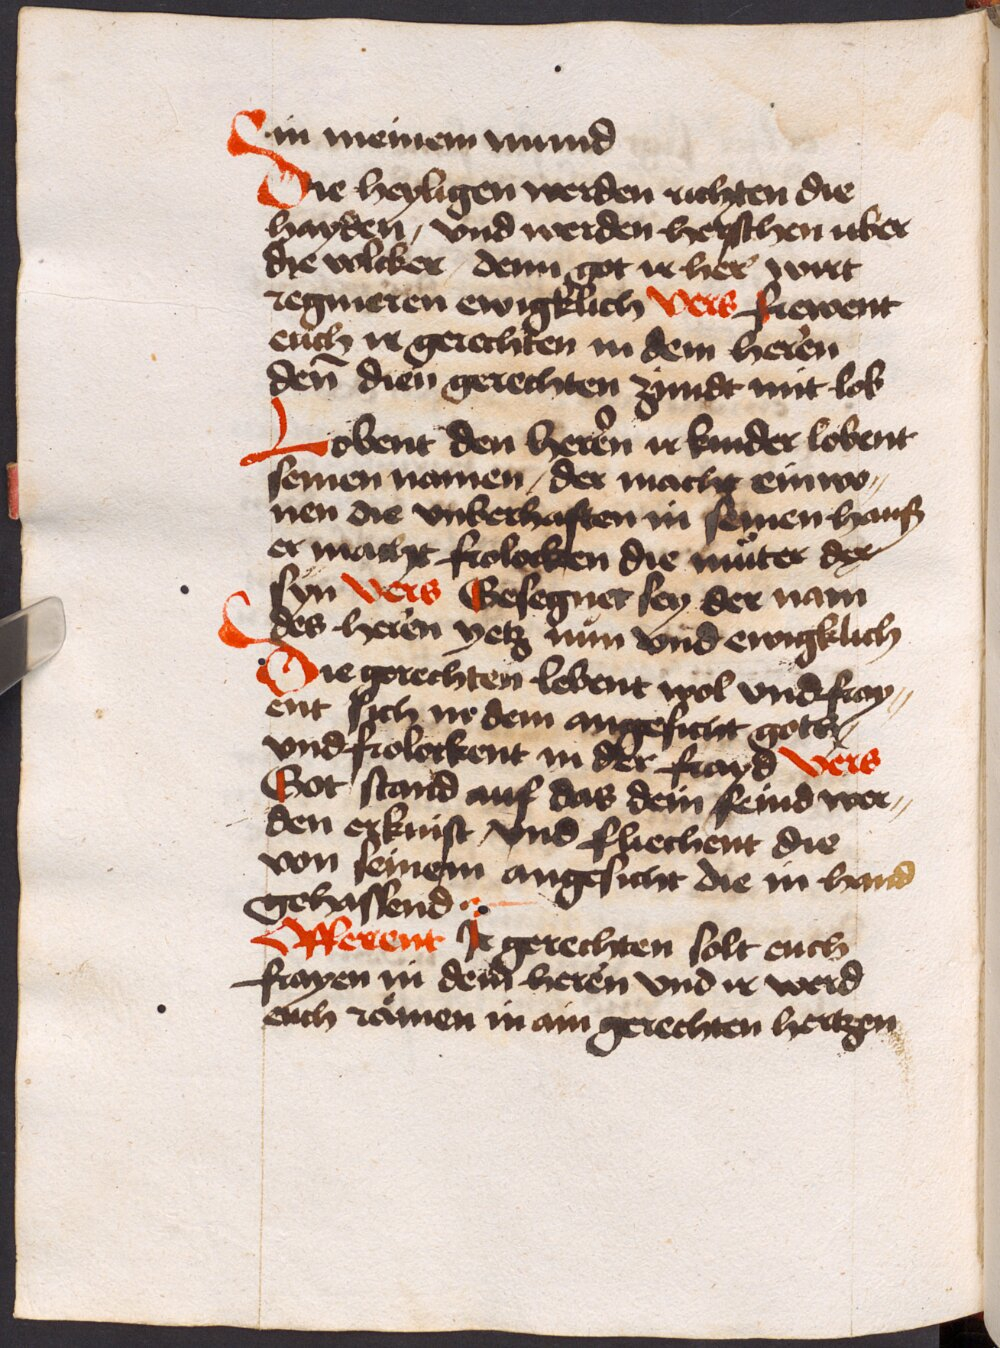 in meinem mund
Die heyligen werden richten die
hayden / vnd werden herschen uber
die volcker / denn got ir her wirt
regnieren ewigklich Vers frewent
euch ir gerechten in dem heren
den̄ dien gerechten zimdt mit lob
Lobent den heren ir kinder lobent
seinen namen / der macht einwo〃
nen die vnberhaften in seinen hauß
er macht frolocken die můter der
syn Vers Gesegnet sey der nam
des heren yetz nun vnd ewigklich
Die gerechten lebent wol vnd fray〃
ent sich in dem angesicht gots /
vnd frolockent in der frayd Vers
Got stand auf das dein feind wer〃
den erknist / vnd fliechent die
von seinem angesicht die in hand
gehassend
Offerent Ir gerechten solt euch
frayen in dem heren vnd ir werd
euch römen in ain gerechten hertzen